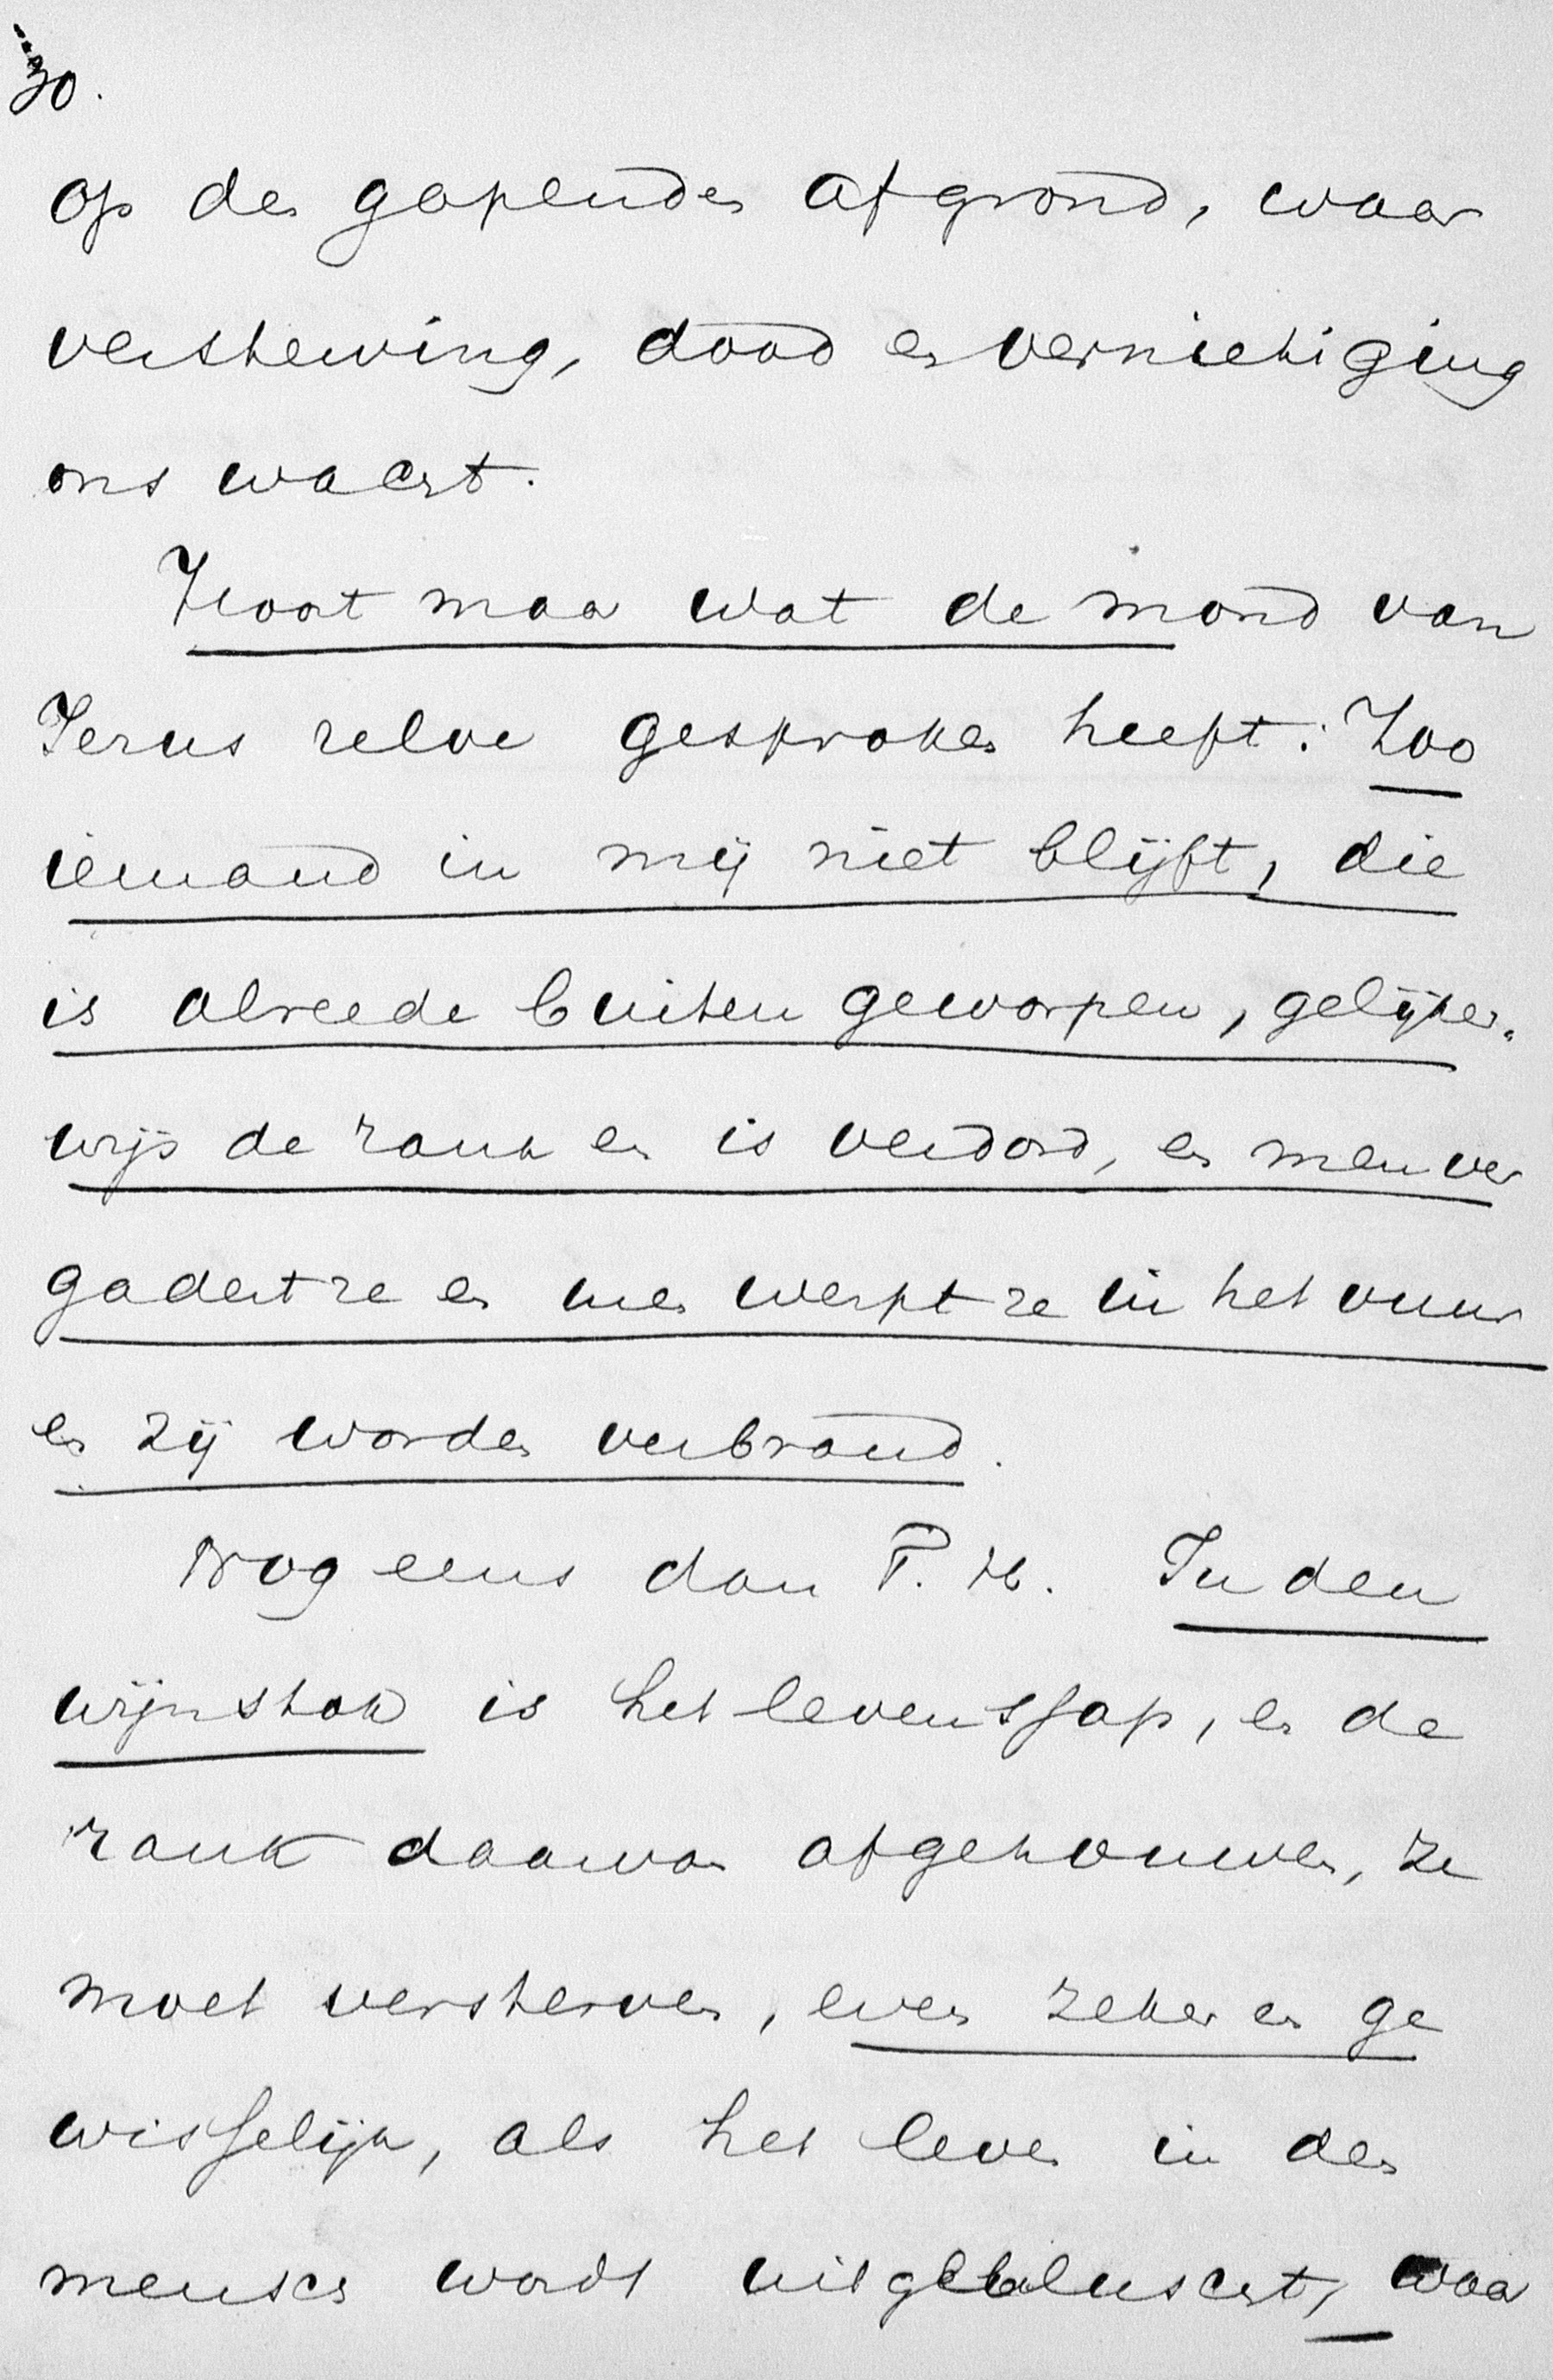 30.
op den gapenden afgrond, waar
versterving, dood en vernietiging
ons wacht.
Hoort maar wat de mond van
Jezus zelve gesproken heeft: Zoo
iemand in mij niet blijft, die
is alreede buiten geworpen, gelijker„
wijs de rank en is verdord, en men ver
gadert ze en men werpt ze in het vuur
en zij worden verbrand.
Nog eens dan T. H. In den
wijnstok is het levenssap, en de
rank daarvan afgehouwen, ze
moet versterven, even zeker en ge
wisselijk, als het leven in den
mensch wordt uitgebluscht, waar